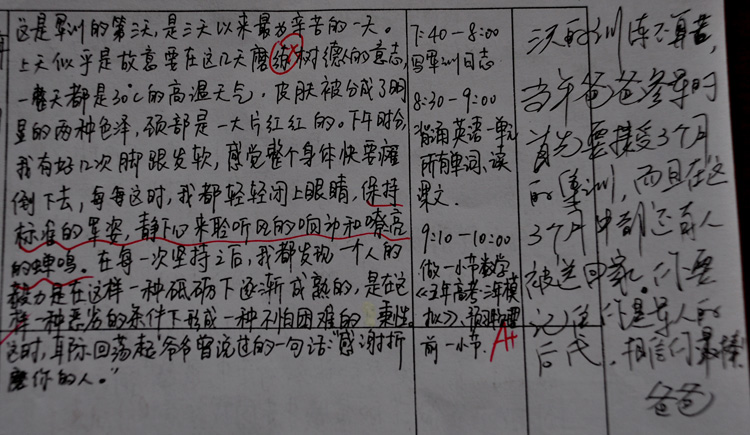 这是军训的第三天,是三天以来最为辛苦的一天。
上天似乎是故意要在这几天磨练树德人的意志,
一整天都是30℃的高温天气,皮肤被分成了明
显的两种色泽,颈部是一大片红红的。下午时分,
我有好几次脚跟发软,感觉整个身体快要瘫
倒下去,每每这时,我都轻轻闭上眼睛,保持
标准的军姿,静下心来聆听风的响动和嘹亮
的蝉鸣。在每一次坚持之后,我都发现一个人的
毅力是在这样一种砥砺下逐渐成熟的,是在这
样一种恶劣的条件下形成一种不怕困难的秉性。
这时,耳际回荡起爷爷曾说过的一句话:“感谢折
磨你的人。”
7:40-8:00
写军训日志
8:30-9:00
背诵英语一单元
所有单词、读
课文.
9:10-10:00
做一小节数学
《五年高考三年模
拟》、预习物理
前一小节.
A+
当年爸爸参军时
首先要接受3个月
的集训,而且在这
3个月中都还有人
被送回家。你要
记住你是军人的
后代,相信你最棒!
爸爸